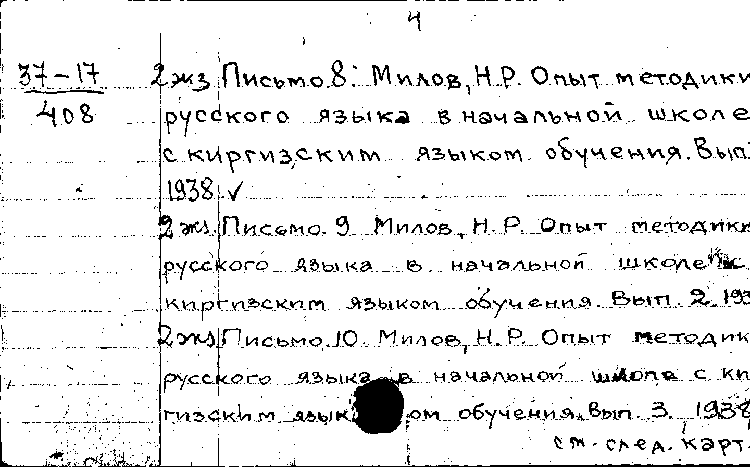 4
37-17
408
2жз Письмо 8: Милов, Н.Р. Опыт методики
русского языка в начальной школе
с киргизским языком обучения. Вып.
1938 ✓
2жз Письмо. 9 Милов, Н.Р. Опыт методики
русского языка в начальной школе с
киргизским языком обучения. Вып. 2 193
2жз Письмо 10. Милов, Н.Р. Опыт методик
русского языка в начальной школе с ки
гизским язык ом обучения. Вып. 3. 1938
см. след. карт.